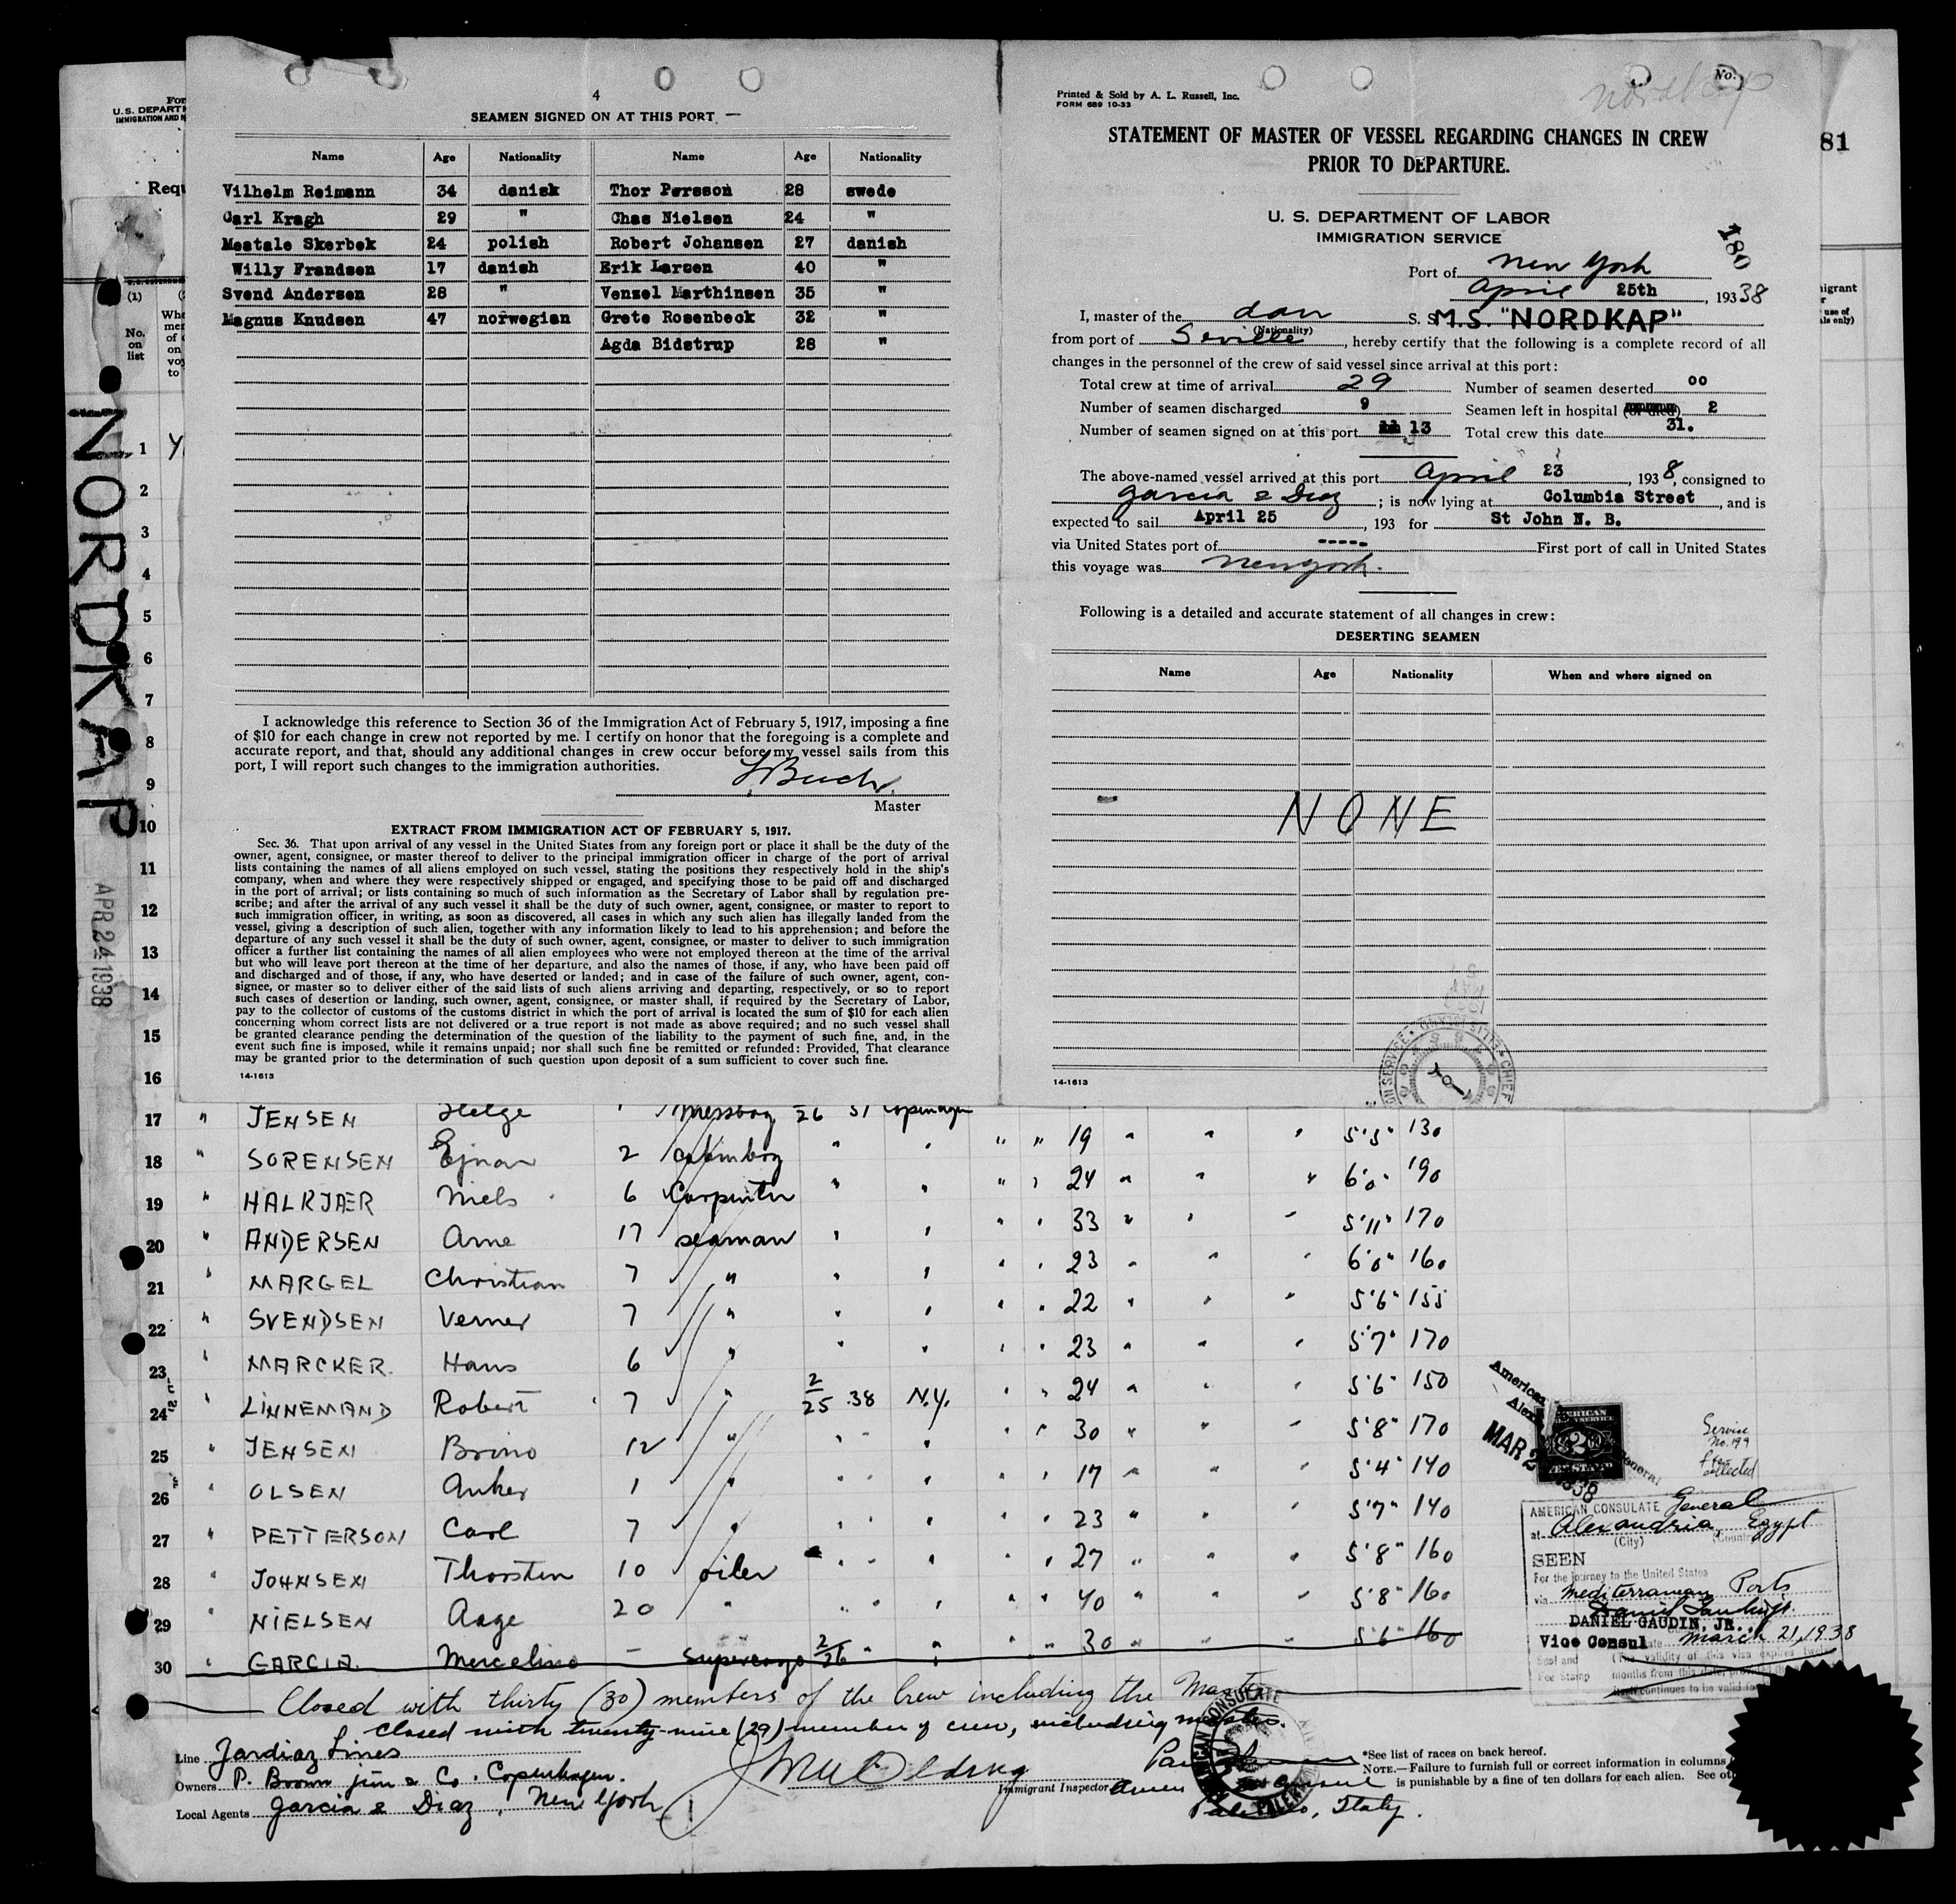 4
SEAMEN SIGNED ON AT THIS PORT —
Name Age Nationality Name Age Nationality
Vilhelm Reimann 34 danisk Thor Persson 28 swede
Carl Kragh 29 " Chas Nielsen 24 "
Meatale Skerbek 24 polish Robert Johansen 27 danish
Willy Frandsen 17 danish Erik Larsen 40 "
Svend Andersen 28 " Venzel Marthinsen 35 "
Magnus Knudsen 47 norwegian Grete Rosenbeck 32 "
Agda Bidstrup 28 "
I acknowledge this reference to Section 36 of the Immigration Act of February 5, 1917, imposing a fine
of $10 for each change in crew not reported by me. I certify on honor that the foregoing is a complete and
accurate report, and that, should any additional changes in crew occur before my vessel sails from this
port, I will report such changes to the immigration authorities.
Master
EXTRACT FROM IMMIGRATION ACT OF FEBRUARY 5, 1917.
Sec. 36. That upon arrival of any vessel in the United States from any foreign port or place it shall be the duty of the
owner, agent, consignee, or master thereof to deliver to the principal immigration officer in charge of the port of arrival
lists containing the names of all aliens employed on such vessel, stating the positions they respectively hold in the ship's
company, when and where they were respectively shipped or engaged, and specifying those to be paid off and discharged
in the port of arrival; or lists containing so much of such information as the Secretary of Labor shall by regulation pre-
scribe; and after the arrival of any such vessel it shall be the duty of such owner, agent, consignee, or master to report to
such immigration officer, in writing, as soon as discovered, all cases in which any such alien has illegally landed from the
vessel, giving a description of such alien, together with any information likely to lead to his apprehension; and before the
departure of any such vessel it shall be the duty of such owner, agent, consignee, or master to deliver to such immigration
officer a further list containing the names of all alien employees who were not employed thereon at the time of the arrival
but who will leave port thereon at the time of her departure, and also the names of those, if any, who have been paid off
and discharged and of those, if any, who have deserted or landed; and in case of the failure of such owner, agent, con-
signee, or master so to deliver either of the said lists of such aliens arriving and departing, respectively, or so to report
such cases of desertion or landing, such owner, agent, consignee, or master shall, if required by the Secretary of Labor,
pay to the collector of customs of the customs district in which the port of arrival is located the sum of $10 for each alien
concerning whom correct lists are not delivered or a true report is not made as above required; and no such vessel shall
be granted clearance pending the determination of the question of the liability to the payment of such fine, and, in the
event such fine is imposed, while it remains unpaid; nor shall such fine be remitted or refunded: Provided, That clearance
may be granted prior to the determination of such question upon deposit of a sum sufficient to cover such fine.
14-1613
Nordkap
No.
Printed & Sold by A. L. Russell, Inc.
FORM 689 10-33
STATEMENT OF MASTER OF VESSEL REGARDING CHANGES IN CREW
PRIOR TO DEPARTURE.
U. S. DEPARTMENT OF LABOR
IMMIGRATION SERVICE
180
Port of New York
April 25th, 1938
I, master of the dan S. S. M.S. "NORDKAP"
(Nationality)
from port of Seville, hereby certify that the following is a complete record of all
changes in the personnel of the crew of said vessel since arrival at this port:
Total crew at time of arrival 29 Number of seamen deserted 00
Number of seamen discharged 9 Seamen left in hospital (or died) 2
Number of seamen signed on at this port 13 Total crew this date 31.
The above-named vessel arrived at this port April 23, 1938, consigned to
Garcia & Diaz; is now lying at Columbia Street, and is
expected to sail April 25, 193 for St John N. B.
via United States port of ----- First port of call in United States
this voyage was New York.
Following is a detailed and accurate statement of all changes in crew:
DESERTING SEAMEN
Name Age Nationality When and where signed on
NONE
14-1613
81
U. S. DEPART
IMMIGRATION AND
(1)
No.
on
list
NORDKAP
APR 24 1938
1
2
3
4
5
6
7
8
9
10
11
12
13
14
15
16
17 " JENSEN Helge Messboy 26 Copenhagen " " 19 " " " 5'5" 130
18 " SORENSEN Ejnar 2 " " " " 24 " " " 6'0" 190
19 " HALKJÆR Niels 6 Carpenter " " " " 33 " " " 5'11" 170
20 " ANDERSEN Arne 17 seaman " " " " 23 " " " 6'0" 160
21 " MARGEL Christian 7 " " " " " 22 " " " 5'6" 155
22 " SVENDSEN Verner 7 " " " " " 23 " " " 5'7" 170
23 " MARCKER. Hans 6 " " " " " 24 " " " 5'6" 150
24 " LINNEMAND Robert 7 " 2/25 .38 N.Y. " " 30 " " " 5'8" 170
25 " JENSEN Bruno 12 " " " " " 17 " " " 5'4" 140
26 " OLSEN Anker 1 " " " " " 23 " " " 5'7" 140
27 " PETTERSON Carl 7 " " " " " 27 " " " 5'8" 160
28 " JOHNSEN Thorsten 10 oiler " " " " 40 " " " 5'8" 160
29 " NIELSEN Aage 20 " " " " " 30 " " " 5'6" 160
30 " GARCIA Mercelino — Supercargo 2/26 " "
Closed with thirty (30) members of the Crew including the Master
Closed with twenty-nine (29) member of crew, including master.
Line Gardiaz Lines
Owners P. Brown jun & Co. Copenhagen.
Local Agents Garcia & Diaz, New York
Immigrant Inspector
Palermo, Italy.
*See list of races on back hereof.
NOTE.—Failure to furnish full or correct information in columns
is punishable by a fine of ten dollars for each alien. See
Service
No. 199
fee
collected
AMERICAN CONSULATE General
at Alexandria, Egypt
(City) (Country)
SEEN
For the journey to the United States
via Mediterranean Ports
DANIEL GAUDIN, JR.
Vice Consul Date March 21, 1938
Seal and
Fee Stamp
(The validity of this visa expires
months from this date, provided
continues to be valid for